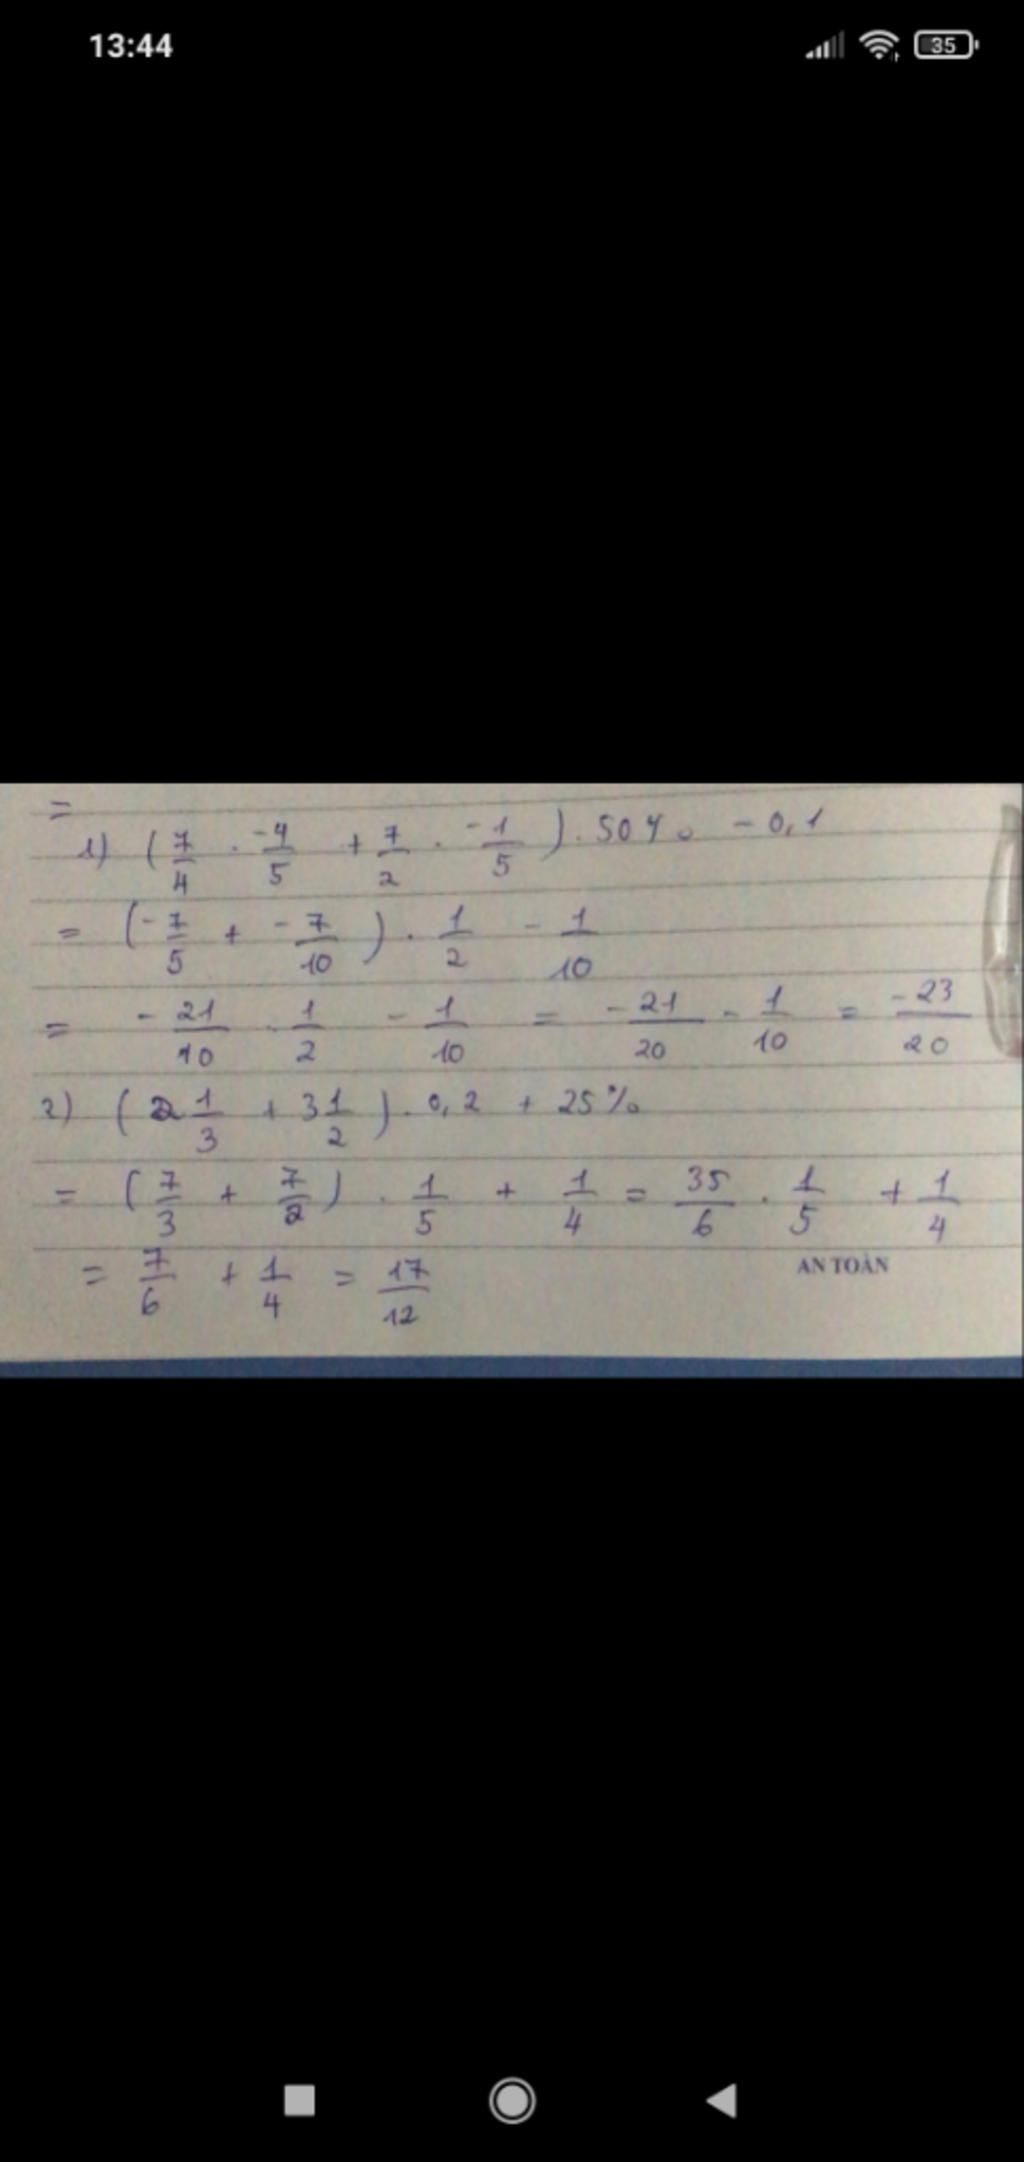 13:44
35
=
1) (7/4 . -4/5 + 7/2 . -1/5) . 50% - 0,1
= (-7/5 + -7/10) . 1/2 - 1/10
= -21/10 . 1/2 - 1/10 = -21/20 - 1/10 = -23/20
2) (2 1/3 + 3 1/2) . 0,2 + 25%
= (7/3 + 7/2) . 1/5 + 1/4 = 35/6 . 1/5 + 1/4
= 7/6 + 1/4 = 17/12
AN TOÀN